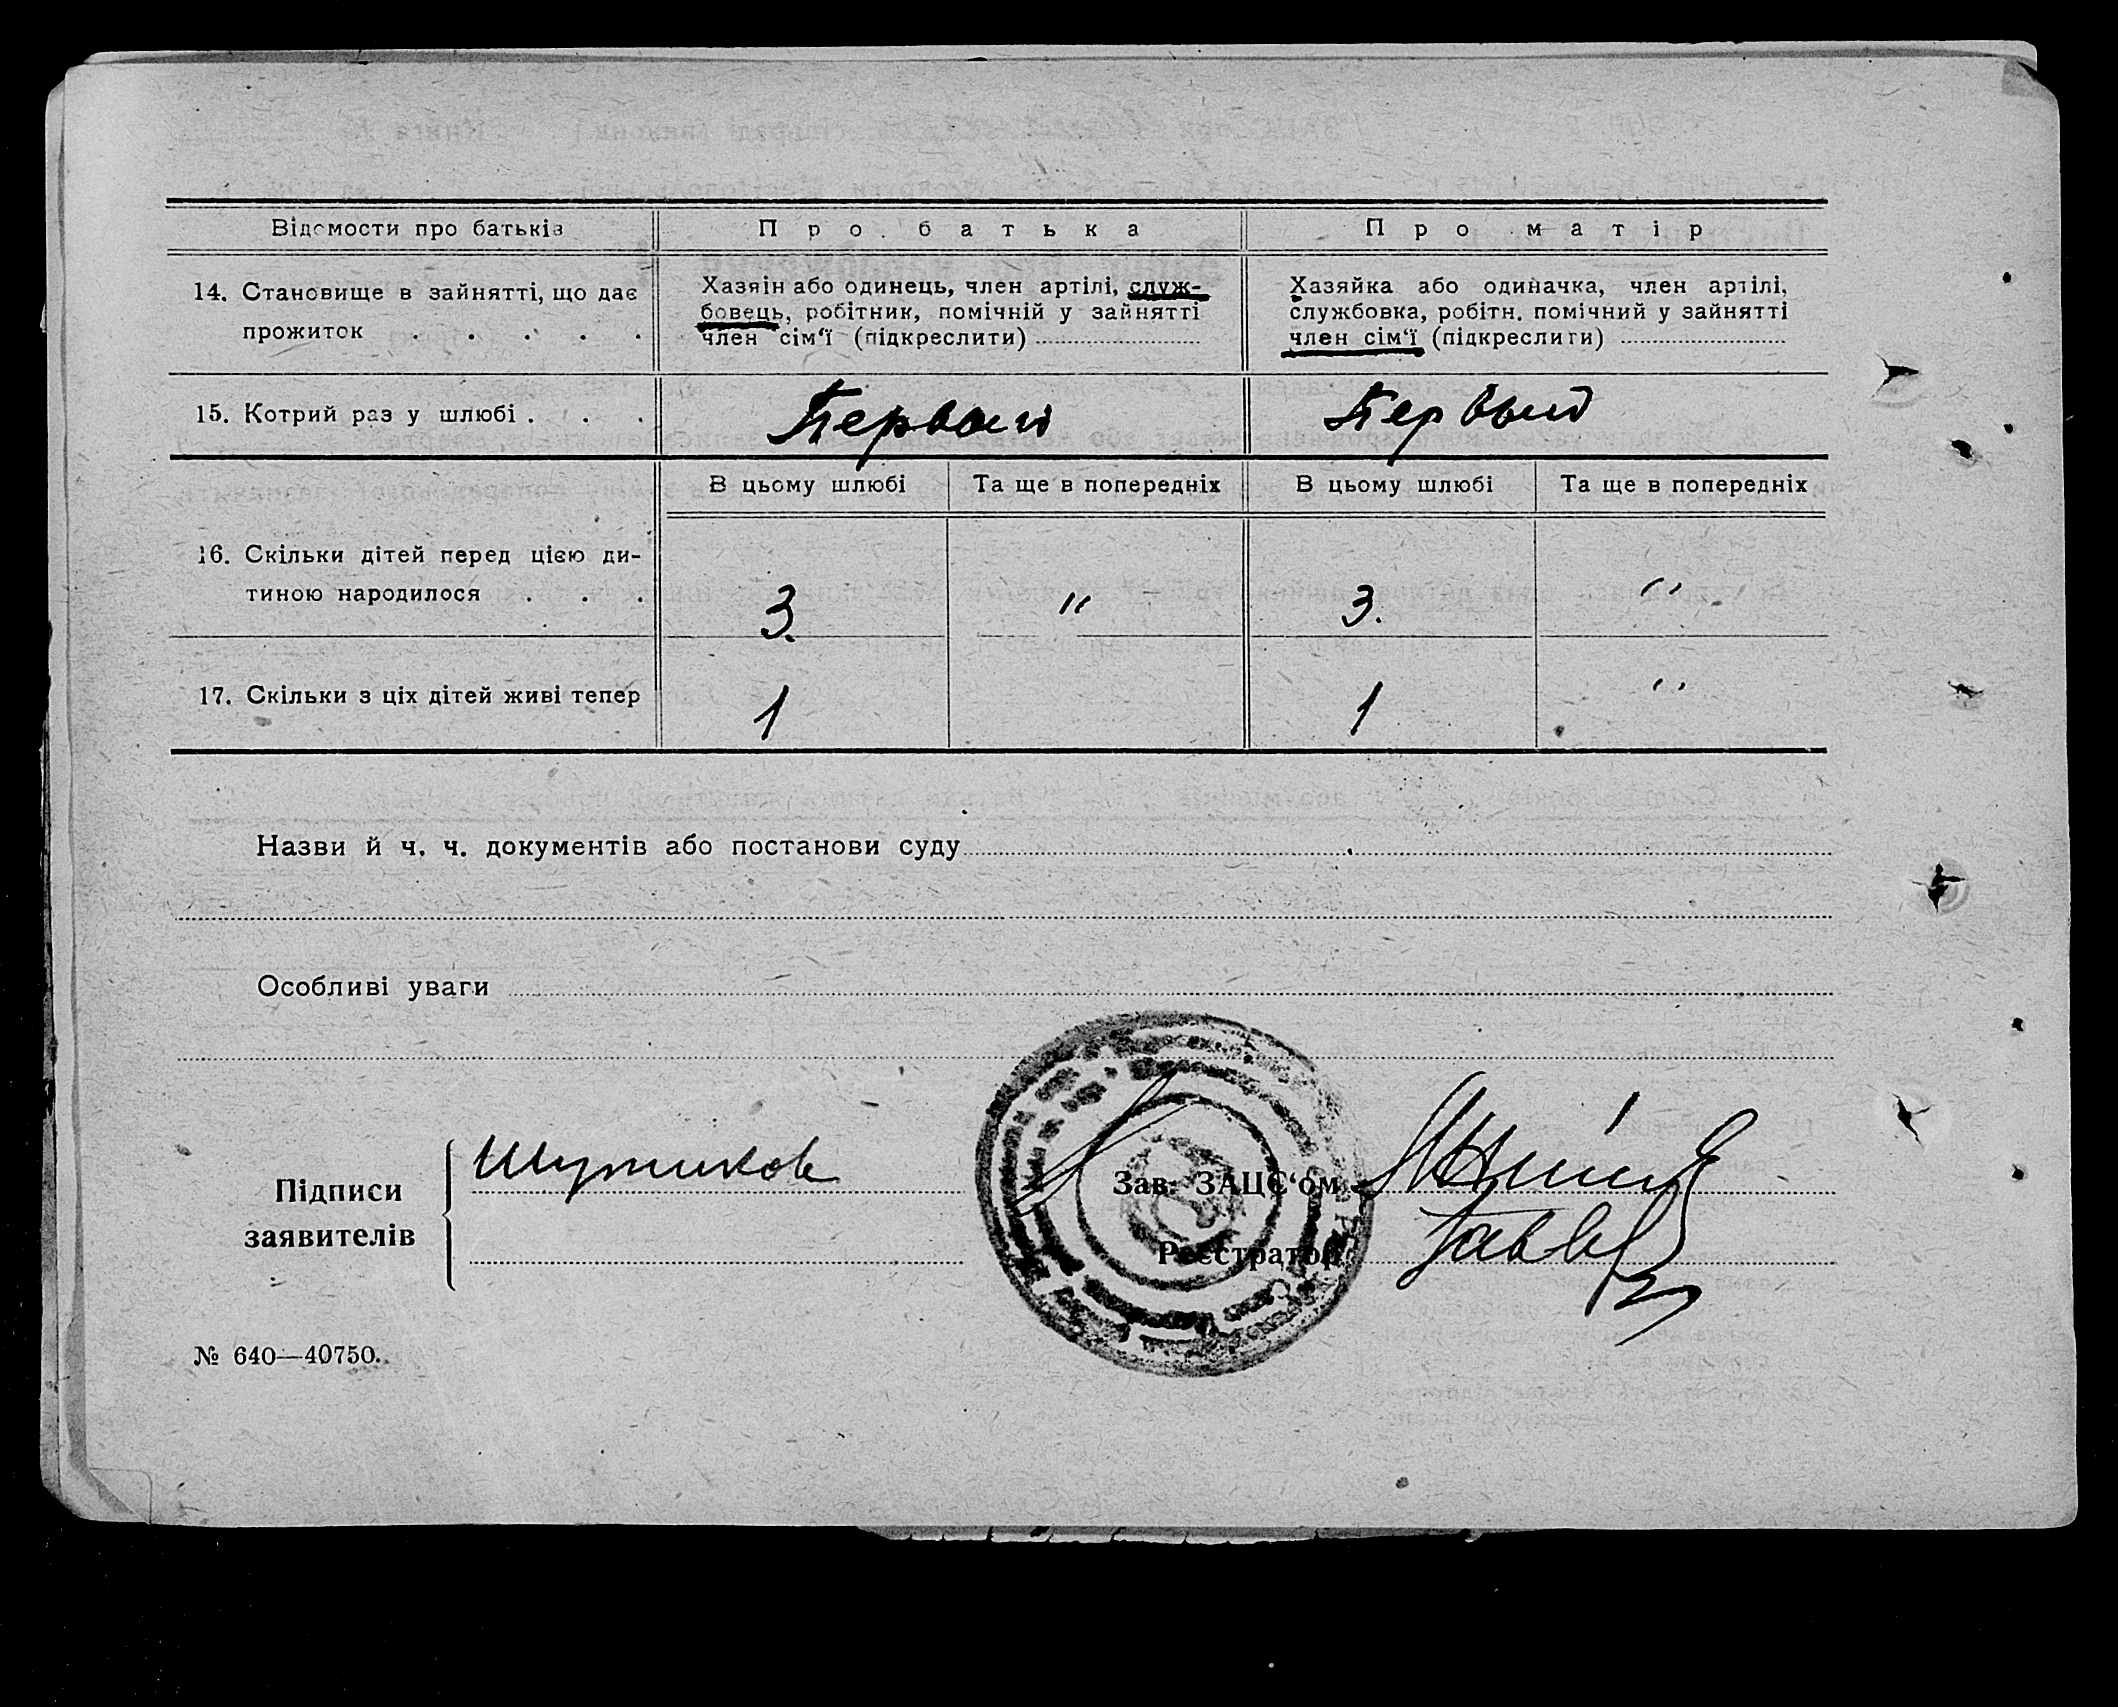 Відомости про батьків
П р о б а т ь к а
П р о м а т і р
14. Становище в зайнятті, що дає
прожиток . . . . .
Хазяін або одинець, член артілі, служ-
бовець, робітник, помічній у зайнятті
член сім‘ї (підкреслити)
Хазяйка або одиначка, член артілі,
службовка, робітн. помічний у зайнятті
член сім‘ї (підкреслити)
15. Котрий раз у шлюбі . . .
Первый
Первый
В цьому шлюбі
Та ще в попередніх
В цьому шлюбі
Та ще в попередніх
16. Скільки дітей перед цією ди-
тиною народилося . . .
3.
"
3.
"
17. Скільки з ціх дітей живі тепер
1
1
"
Назви й ч. ч. документів або постанови суду
Особливі уваги
Підписи
заявителів
Шутиков
Зав. ЗАЦС‘ом
Реєстратор
№ 640—40750.